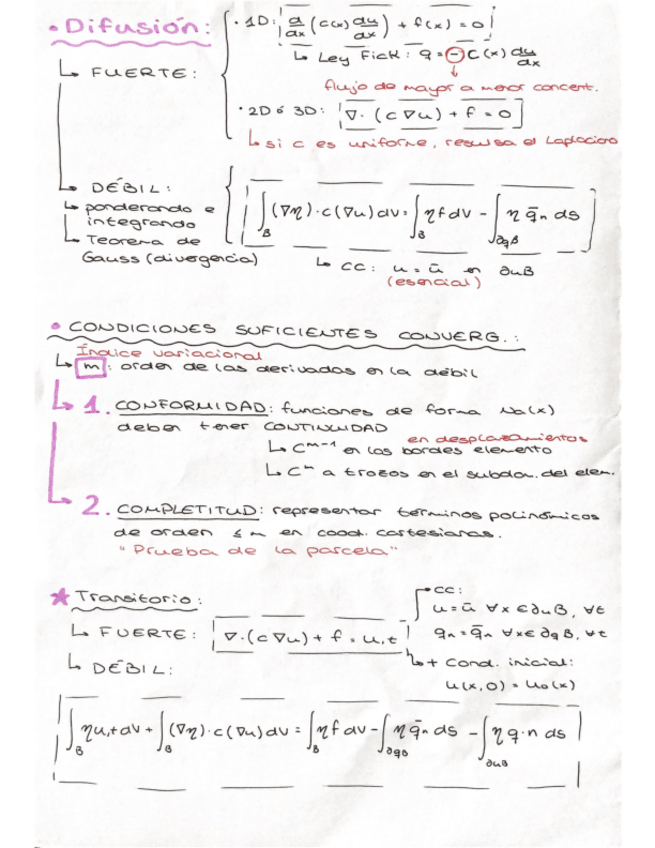 • Difusión:
• 1D: d/dx (c(x) du/dx) + f(x) = 0
↳ Ley Fick: q = - c(x) du/dx
↳ FUERTE:
flujo de mayor a menor concent.
• 2D ó 3D: ∇·(c∇u) + f = 0
↳ si c es uniforme, resulta el Laplaciano
↳ DÉBIL:
↳ ponderando e
integrando
↳ Teorema de
Gauss (divergencia)
∫_B (∇η)·c(∇u)dV = ∫_B ηf dV - ∫_∂qB η q̄n ds
↳ CC: u = ū en ∂uB
(esencial)
• CONDICIONES SUFICIENTES CONVERG.:
Índice variacional
↳ m: orden de las derivadas en la débil
↳ 1. CONFORMIDAD: funciones de forma Na(x)
deben tener CONTINUIDAD
en desplazamientos
↳ C^m-1 en los bordes elemento
↳ C^m a trozos en el subdom. del elem.
↳ 2. COMPLETITUD: representar términos polinómicos
de orden ≤ m en coord. cartesianas.
"Prueba de la parcela"
★ Transitorio:
↳ FUERTE: ∇·(c∇u) + f = u,t
→ CC:
u = ū ∀x ∈ ∂uB, ∀t
qn = q̄n ∀x ∈ ∂qB, ∀t
↳ + Cond. inicial:
u(x,0) = u0(x)
↳ DÉBIL:
∫_B ηu,t dV + ∫_B (∇η)·c(∇u)dV = ∫_B ηf dV - ∫_∂qB η q̄n ds - ∫_∂uB η q·n ds